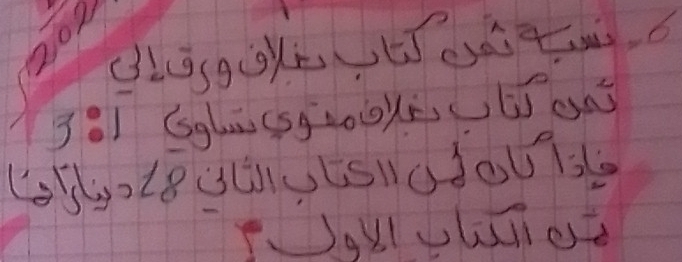 6- نسبة ثمن كتاب بغلاف ورقي إلى
ثمن كتاب بغلاف مقوى تساوي 1:3
فإذا كان ثمن الكتاب الثاني 18 دينارا فما
ثمن الكتاب الاول ؟